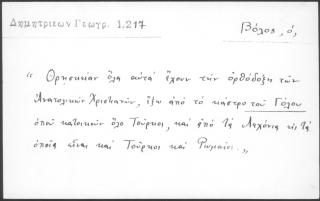 Δημητριεων Γεωγρ. 1,217
Βόλος, ὁ,
“ Θρησκείαν ὅλα αὐτὰ ἔχουν τὴν ὀρθόδοξη τῶν
Ἀνατολικῶν Χριστιανῶν, ἔξω ἀπὸ τὸ κάστρο τοῦ Γόλου
ὁποῦ κατοικοῦν ὅλο Τοῦρκοι, καὶ ἀπὸ τὰ Λεχόνια εἰς τὰ
ὁποῖα εἶναι καὶ Τοῦρκοι καὶ Ρωμαῖοι.„